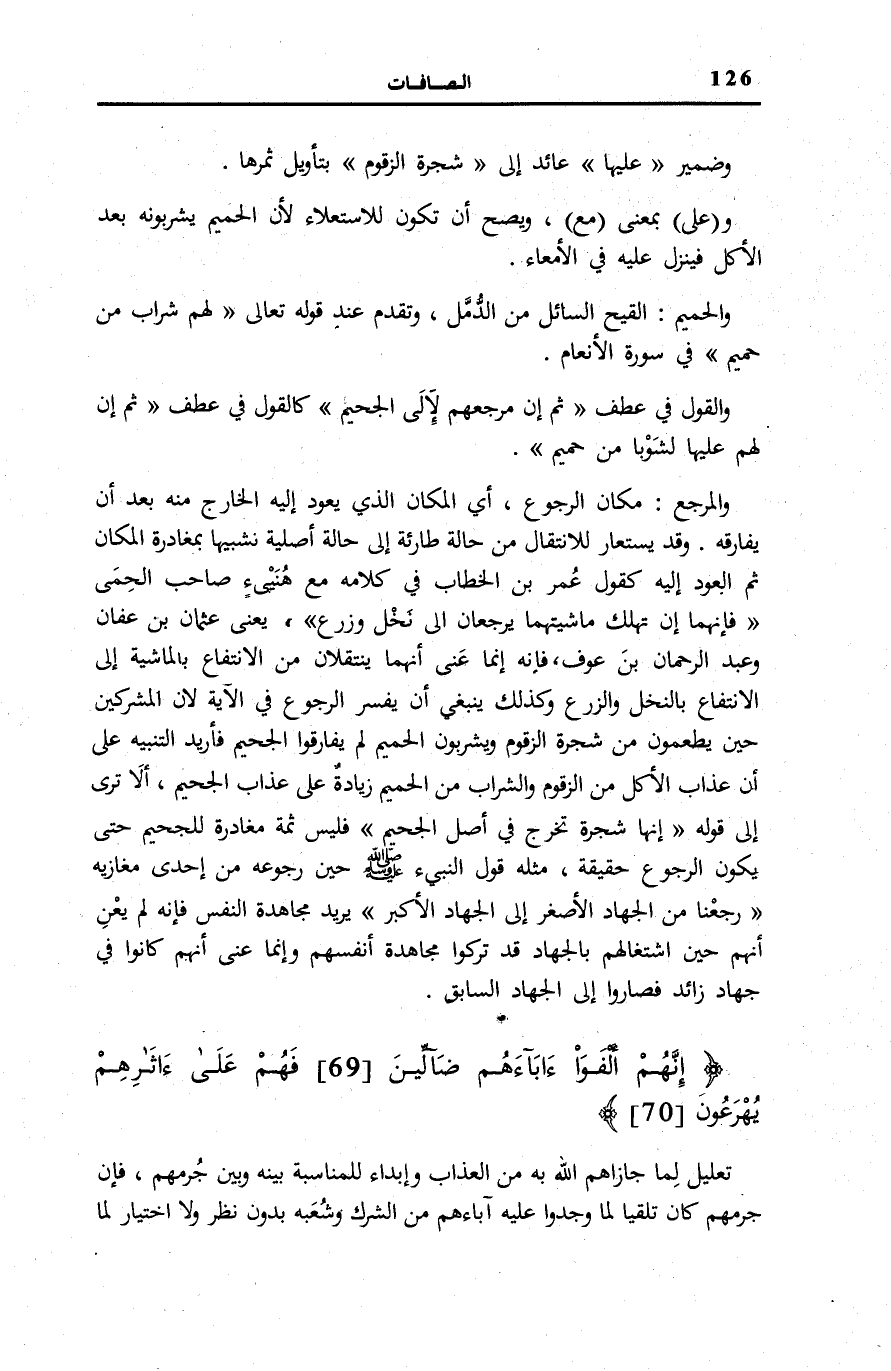 126
الصافات
وضمير « عليها » عائد إلى « شجرة الزقوم » بتأويل ثمرها .
و(على) بمعنى (مع) ، ويصح أن تكون للاستعلاء لأن الحميم يشربونه بعد
الأكل فينزل عليه في الأمعاء .
والحميم : القيح السائل من الدُّمَّل ، وتقدم عند قوله تعالى « لهم شراب من
حميم » في سورة الأنعام .
والقول في عطف « ثم إن مرجعهم لَإِلَى الجحيم » كالقول في عطف « ثم إن
لهم عليها لشَوْبا من حميم » .
والمرجع : مكان الرجوع ، أي المكان الذي يعود إليه الخارج منه بعد أن
يفارقه . وقد يستعار للانتقال من حالة طارئة إلى حالة أصلية تشبيها بمغادرة المكان
ثم العود إليه كقول عُمر بن الخطاب في كلامه مع هُنَيْيءٍ صاحب الحِمَى
« فإنهما إن تهلك ماشيتهما يرجعان الى نَخْل وزرع» ، يعنى عثمان بن عفان
وعبد الرحمان بنَ عوف، فإنه إنما عَنى أنهما ينتقلان من الانتفاع بالماشية إلى
الانتفاع بالنخل والزرع وكذلك ينبغي أن يفسر الرجوع في الآية لان المشركين
حين يطعمون من شجرة الزقوم ويشربون الحميم لم يفارقوا الجحيم فأريد التنبيه على
أن عذاب الأكل من الزقوم والشراب من الحميم زيادةٌ على عذاب الجحيم ، ألَا ترى
إلى قوله « إنها شجرة تخرج في أصل الجحيم » فليس ثمة مغادرة للجحيم حتى
يكون الرجوع حقيقة ، مثله قول النبيء ﷺ حين رجوعه من إحدى مغازيه
« رجعْنا من الجهاد الأصغر إلى الجهاد الأكبر » يريد مجاهدة النفس فإنه لم يعْنِ
أنهم حين اشتغالهم بالجهاد قد تركوا مجاهدة أنفسهم وإنما عنى أنهم كانوا في
جهاد زائد فصاروا إلى الجهاد السابق .
﴿ إِنَّهُمْ أَلْفَوْاْ ءَابَآءَهُم ضَآلِّينَ [69] فَهُمْ عَلَىٰ ءَاثَٰرِهِمْ
يُهْرَعُونَ [70] ﴾
تعليل لِما جازاهم الله به من العذاب وإبداء للمناسبة بينه وبين جُرمهم ، فإن
جرمهم كان تلقيا لما وجدوا عليه آباءهم من الشرك وشُعَبه بدون نظر ولا اختيار لما